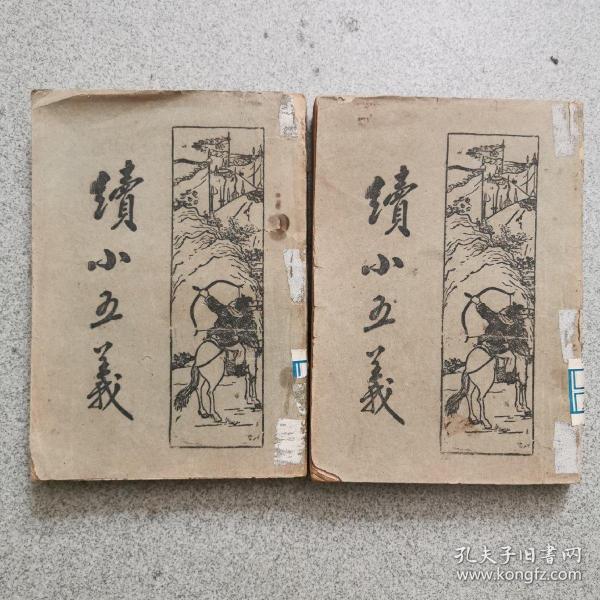 續小五義
續小五義
孔夫子旧书网
www.kongfz.com